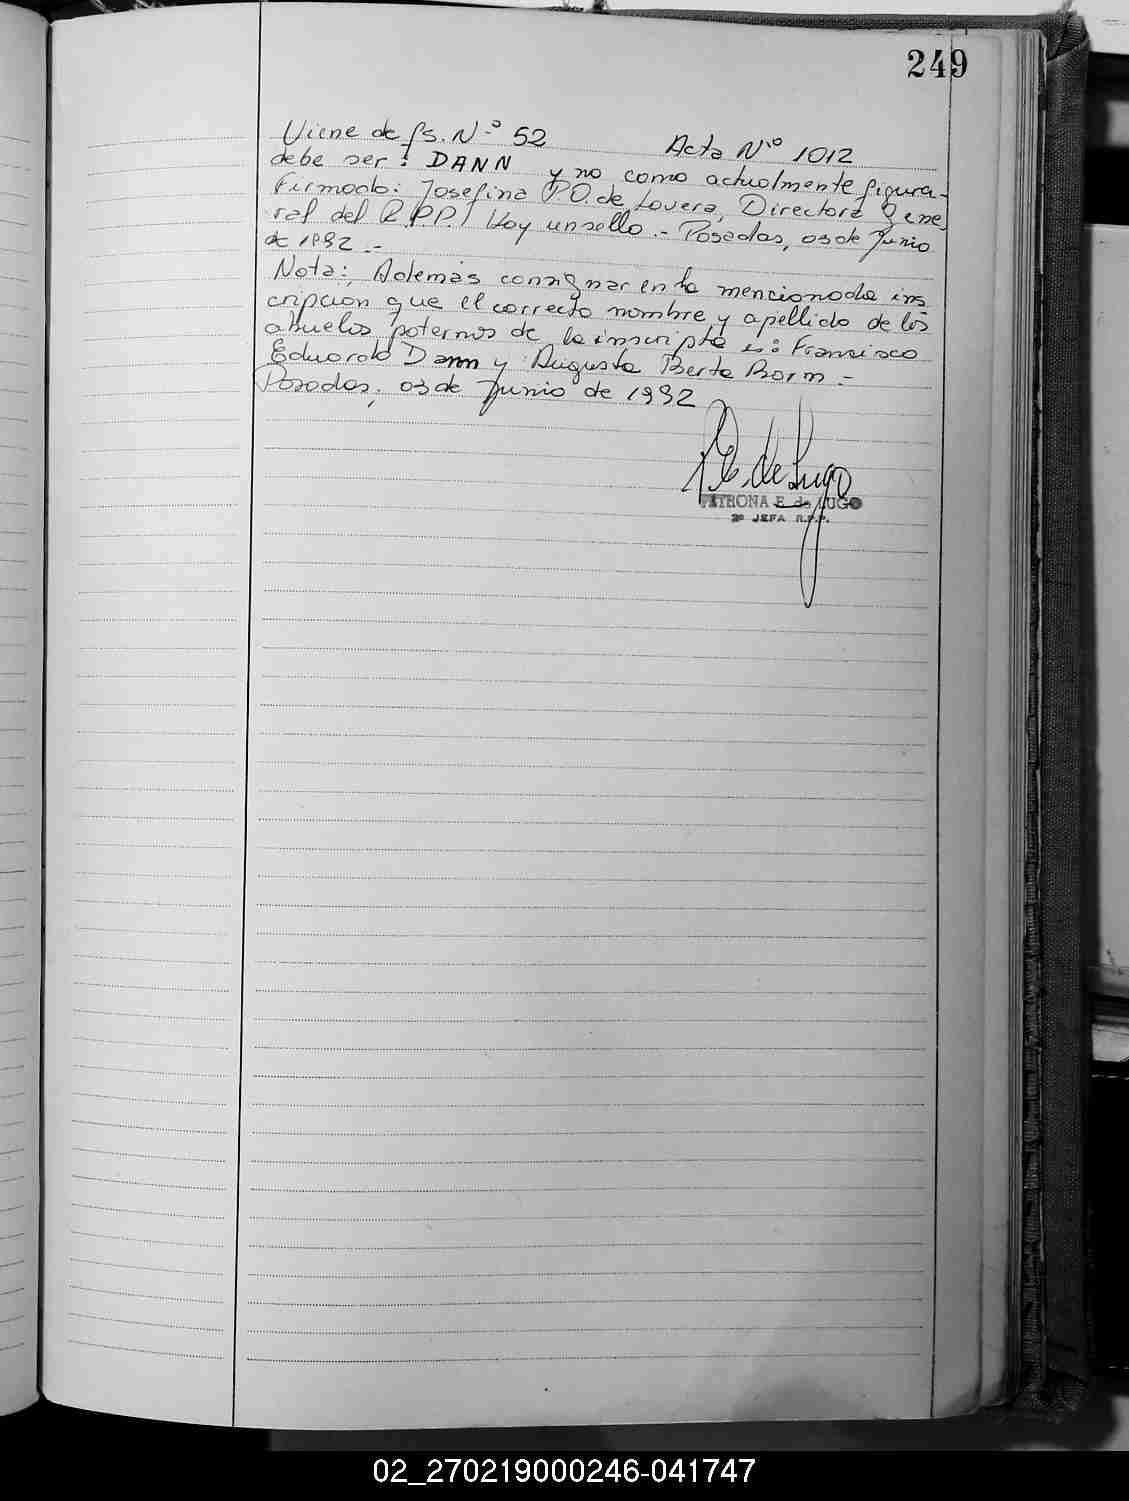 249
Viene de fs. Nº 52 Acta Nº 1012
debe ser: DANN y no como actualmente figura-
Firmado: Josefina P.O. de Lovera, Directora Gene
ral del R.P.P./ Hay un sello.- Posadas, 03 de Junio
de 1992.-
Nota: Además consignar en la mencionada ins
cripcion que el correcto nombre y apellido de los
abuelos paternos de la inscripta es: Francisco
Eduardo Dann y Augusta Berta Borm.-
Posadas, 03 de Junio de 1992
P.E. de Lugo
PETRONA E. de LUGO
2º JEFA R.P.P.
02_270219000246-041747